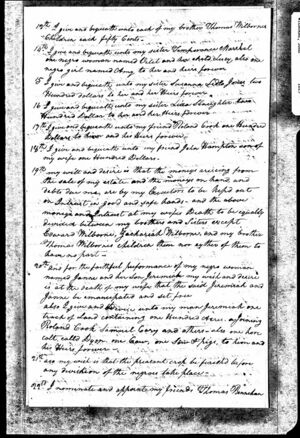 13th I give and bequeath unto each of my brother Thomas Wilbornes
Children each fifty Cents.
14th I give and bequeath unto my sister Temperance Markel
one negro woman named and her child Lucy, also one
negro girl named Amy to her and heirs forever
15 I give and bequeath unto my sister Susanna Jones two
Hundred dollars to her and her Heirs forever
16 I give and bequeath unto my sister
Hundred Dollars to her and her Heirs forever
17th I give and bequeath unto my friend Roland Cook one Hundred
Dollars to him and his Heirs forever
18th I give and bequeath unto my friend John Hampton son of
my wife one Hundred Dollars.
19th my will and desire is that the moneys arising from
the sale of my estate and the moneys on hand and
debts due me, are by my Executors to be kept out
on Interest in good and safe hands - and the above
moneys and Interest at my wife's Death to be equally
divided between my brothers and Sisters except
Edward Wilborne, Zachariah Wilborne and my brother
Thomas Wilbornes children them nor eyther of them to
have no part -
20th also for the faithful performance of my negro woman
named Janne and her son Jeremiah my wish and desire
is at the death of my wife that the said Jeremiah and
Janne be emancipated and set free
also I give and unto my man Jeremiah one
track of Land containing one Hundred Acres, adjoining
Roland Cook Samuel Cory and others - also one hor
colt, called one Cow, one Sow & pigs, to him and
his Heirs forever -
21st my wish is that the present crop be finished before
any division of the negroes take place -
22nd I nominate and appoint my friends Thomas